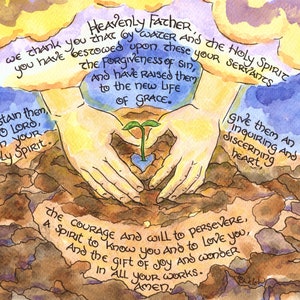 Heavenly Father
we thank you that by water and the Holy Spirit
you have bestowed upon these your servants
the forgiveness of sin,
and have raised them
to the new life
of grace.
stain them,
O Lord,
in your
ly Spirit.
give them an
inquiring and
discerning
heart,
the courage and will to persevere,
a spirit to know you and to love you,
and the gift of joy and wonder
in all your works.
Amen.